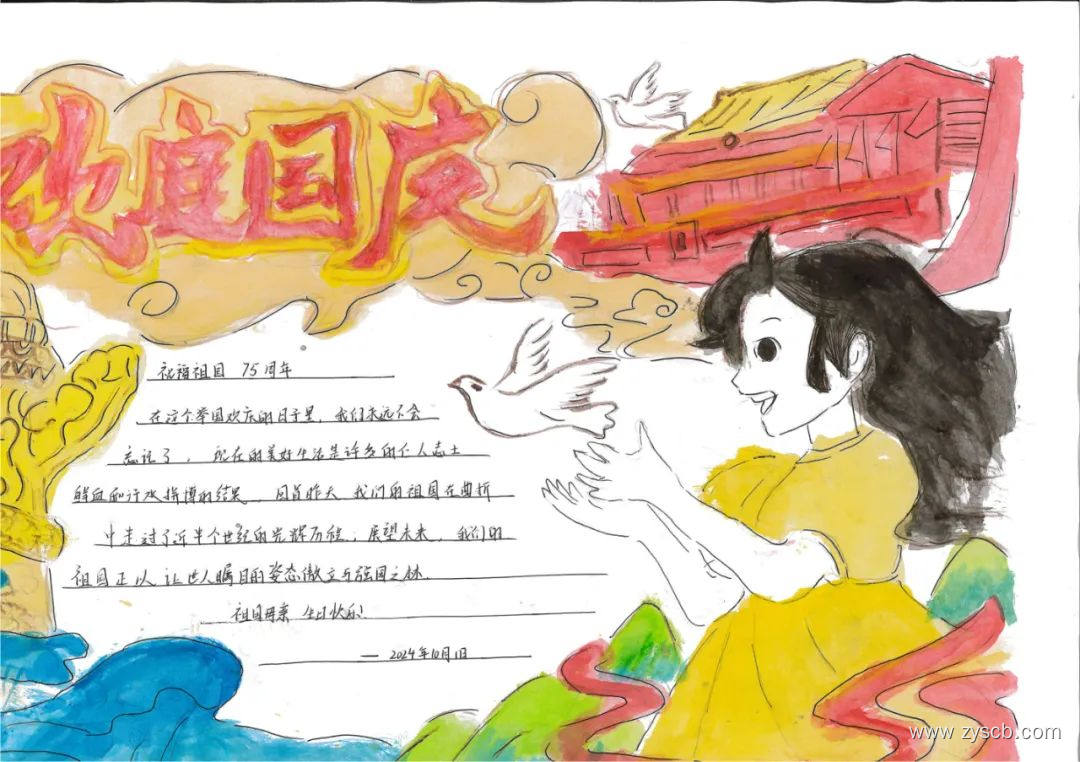 欢度国庆
祝福祖国 75周年
在这个举国欢庆的日子里，我们永远不会
忘记了，现在的美好生活是许多的仁人志士
鲜血和汗水拼博的结果，回首昨天 我们的祖国在曲折
中走过了近半个世纪的光辉历程；展望未来，我们的
祖国正以 让世人瞩目的姿态傲立与强国之林.
祖国母亲 生日快乐！
— 2024年10月1日
www.zyscb.com